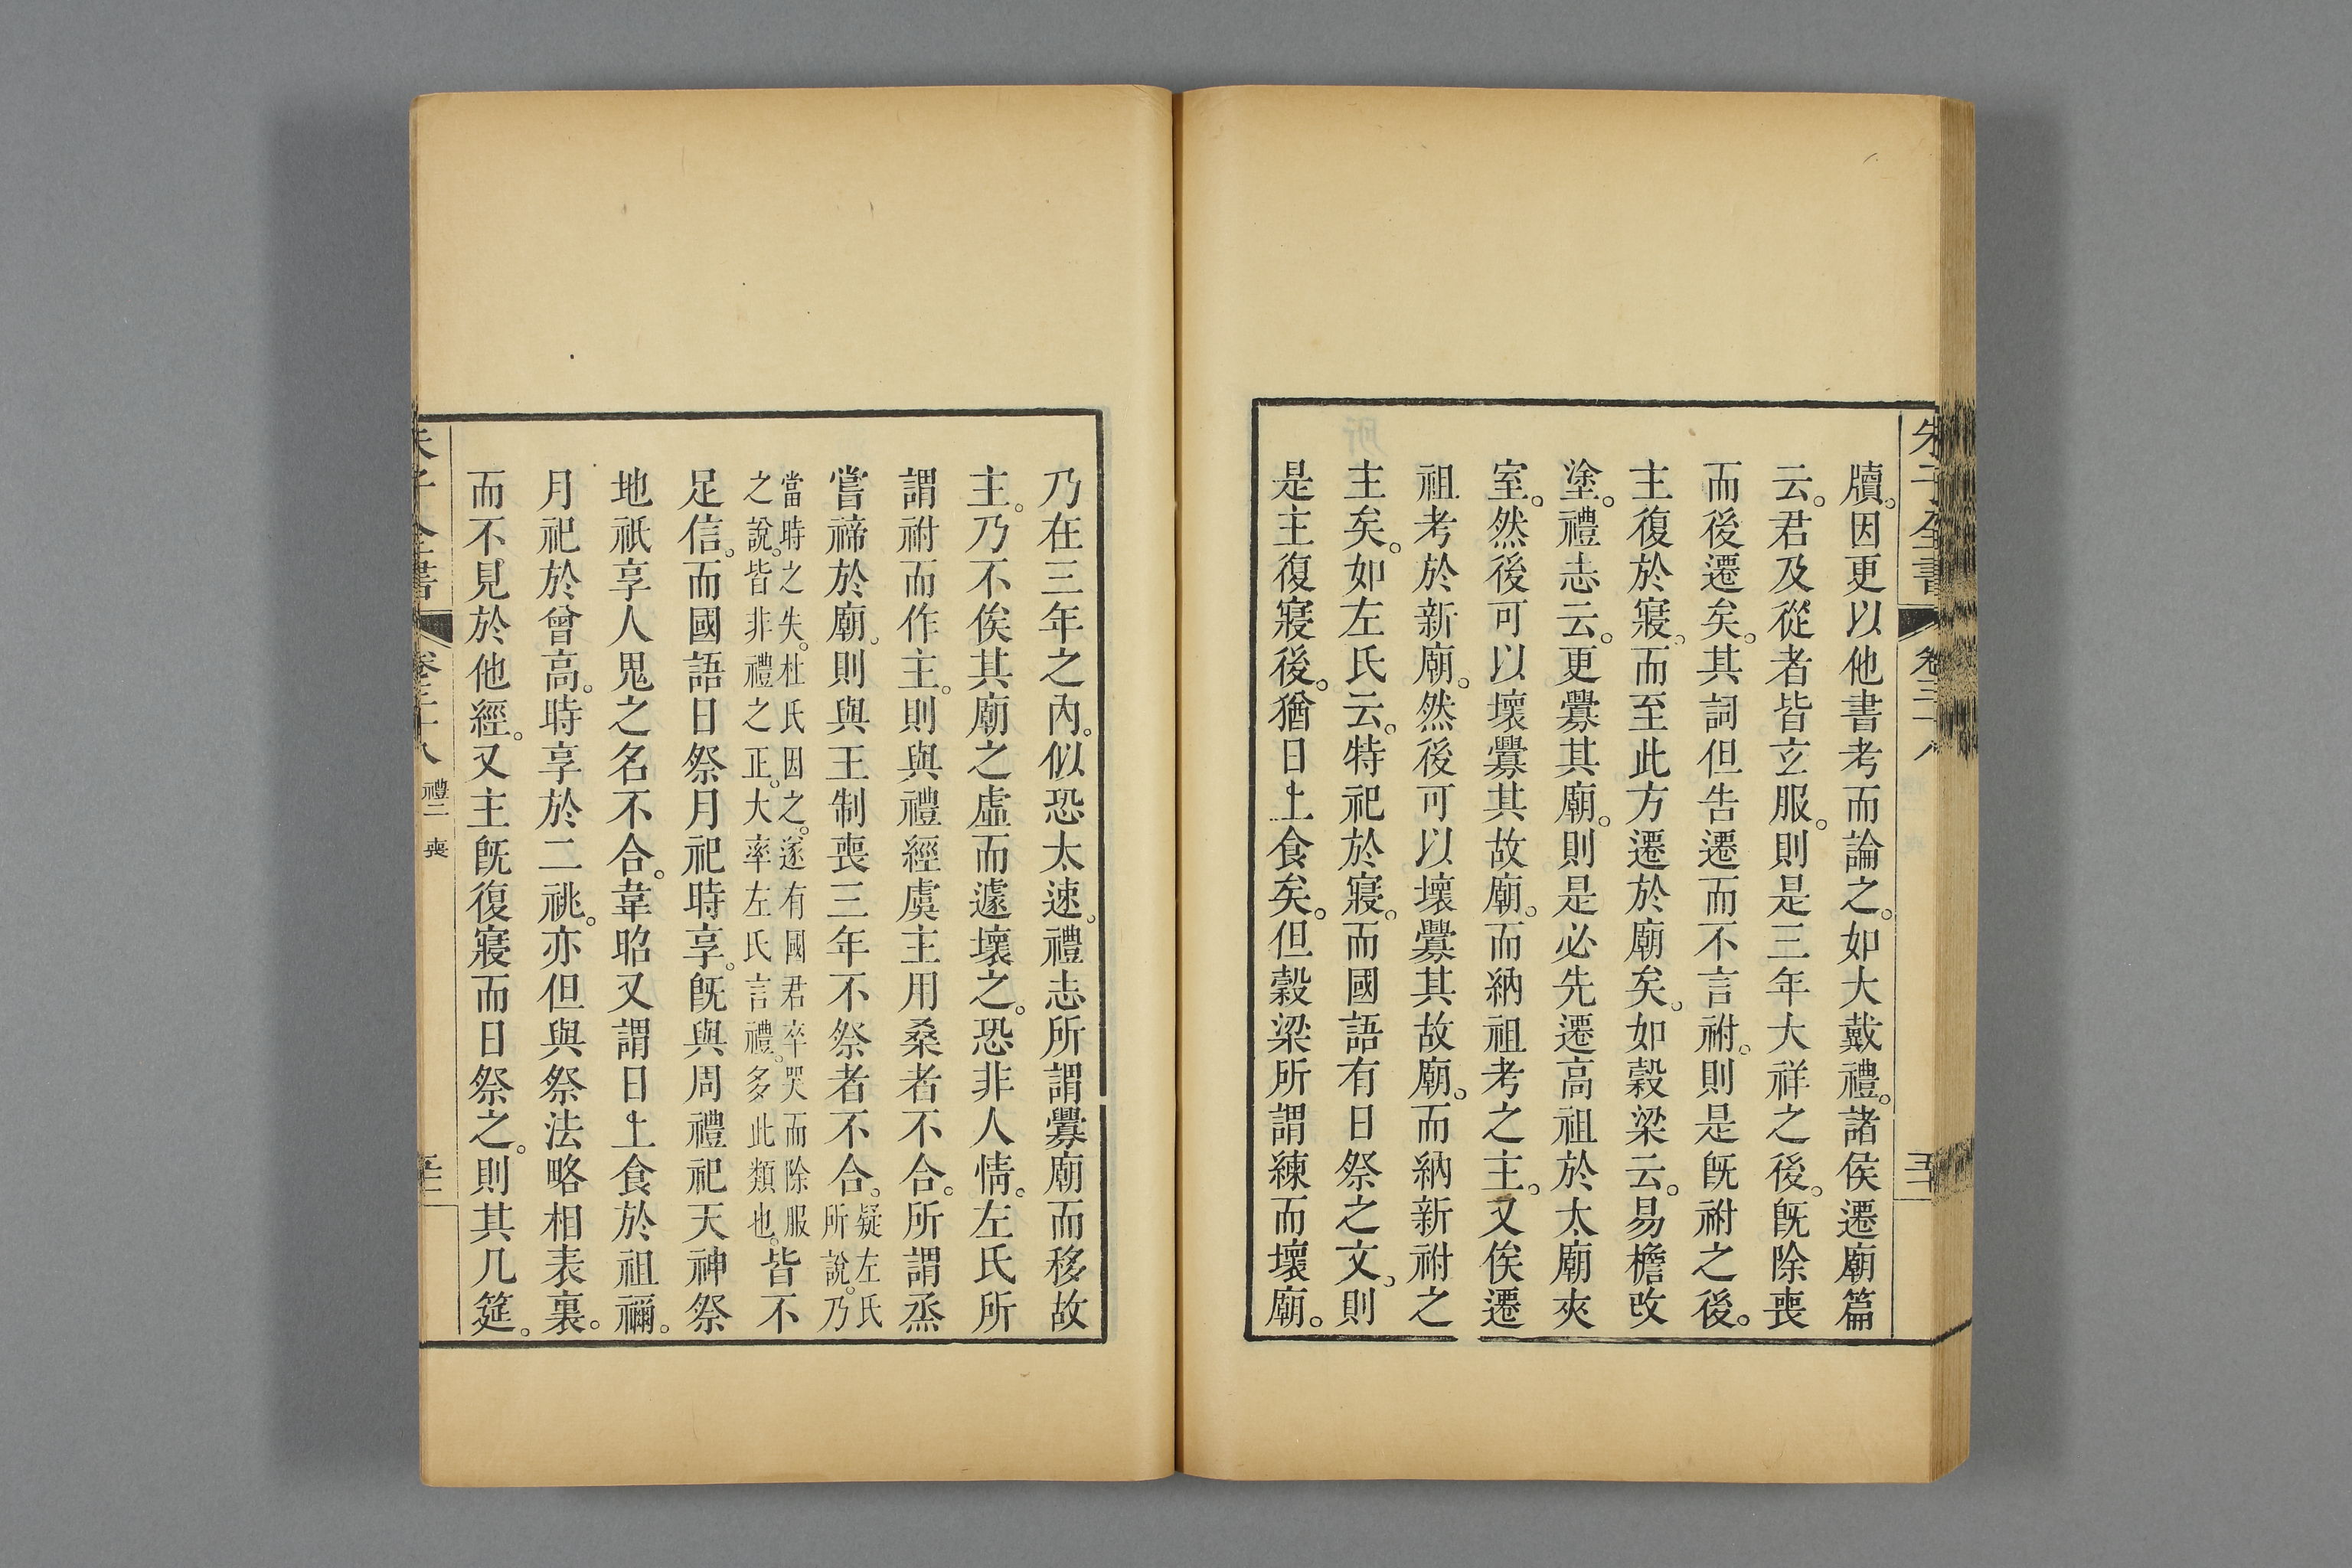 朱子全書 卷三十八
牘。因更以他書考而論之。如大戴禮。諸侯遷廟篇
云。君及從者皆玄服。則是三年大祥之後。旣除喪
而後遷矣。其詞但告遷而不言祔。則是旣祔之後。
主復於寢。而至此方遷於廟矣。如穀梁云。易檐改
塗。禮志云。更釁其廟。則是必先遷高祖於太廟夾
室。然後可以壞釁其故廟。而納祖考之主。又俟遷
祖考於新廟。然後可以壞釁其故廟。而納新祔之
主矣。如左氏云。特祀於寢。而國語有日祭之文。則
是主復寢後。猶日上食矣。但穀梁所謂練而壞廟。
乃在三年之內。似恐太速。禮志所謂釁廟而移故
主。乃不俟其廟之虛而遽壞之。恐非人情。左氏所
謂祔而作主。則與禮經虞主用桑者不合。所謂烝
嘗禘於廟。則與王制喪三年不祭者不合。疑左氏所說。乃
當時之失。杜氏因之。遂有國君卒哭而除服之說。皆非禮之正。大率左氏言禮。多此類也。皆不
足信。而國語日祭月祀時享。旣與周禮祀天神祭
地祇享人鬼之名不合。韋昭又謂日上食於祖禰。
月祀於曾高。時享於二祧。亦但與祭法略相表裏。
而不見於他經。又主旣復寢而日祭之。則其几筵。
朱子全書 卷三十八 禮二 喪